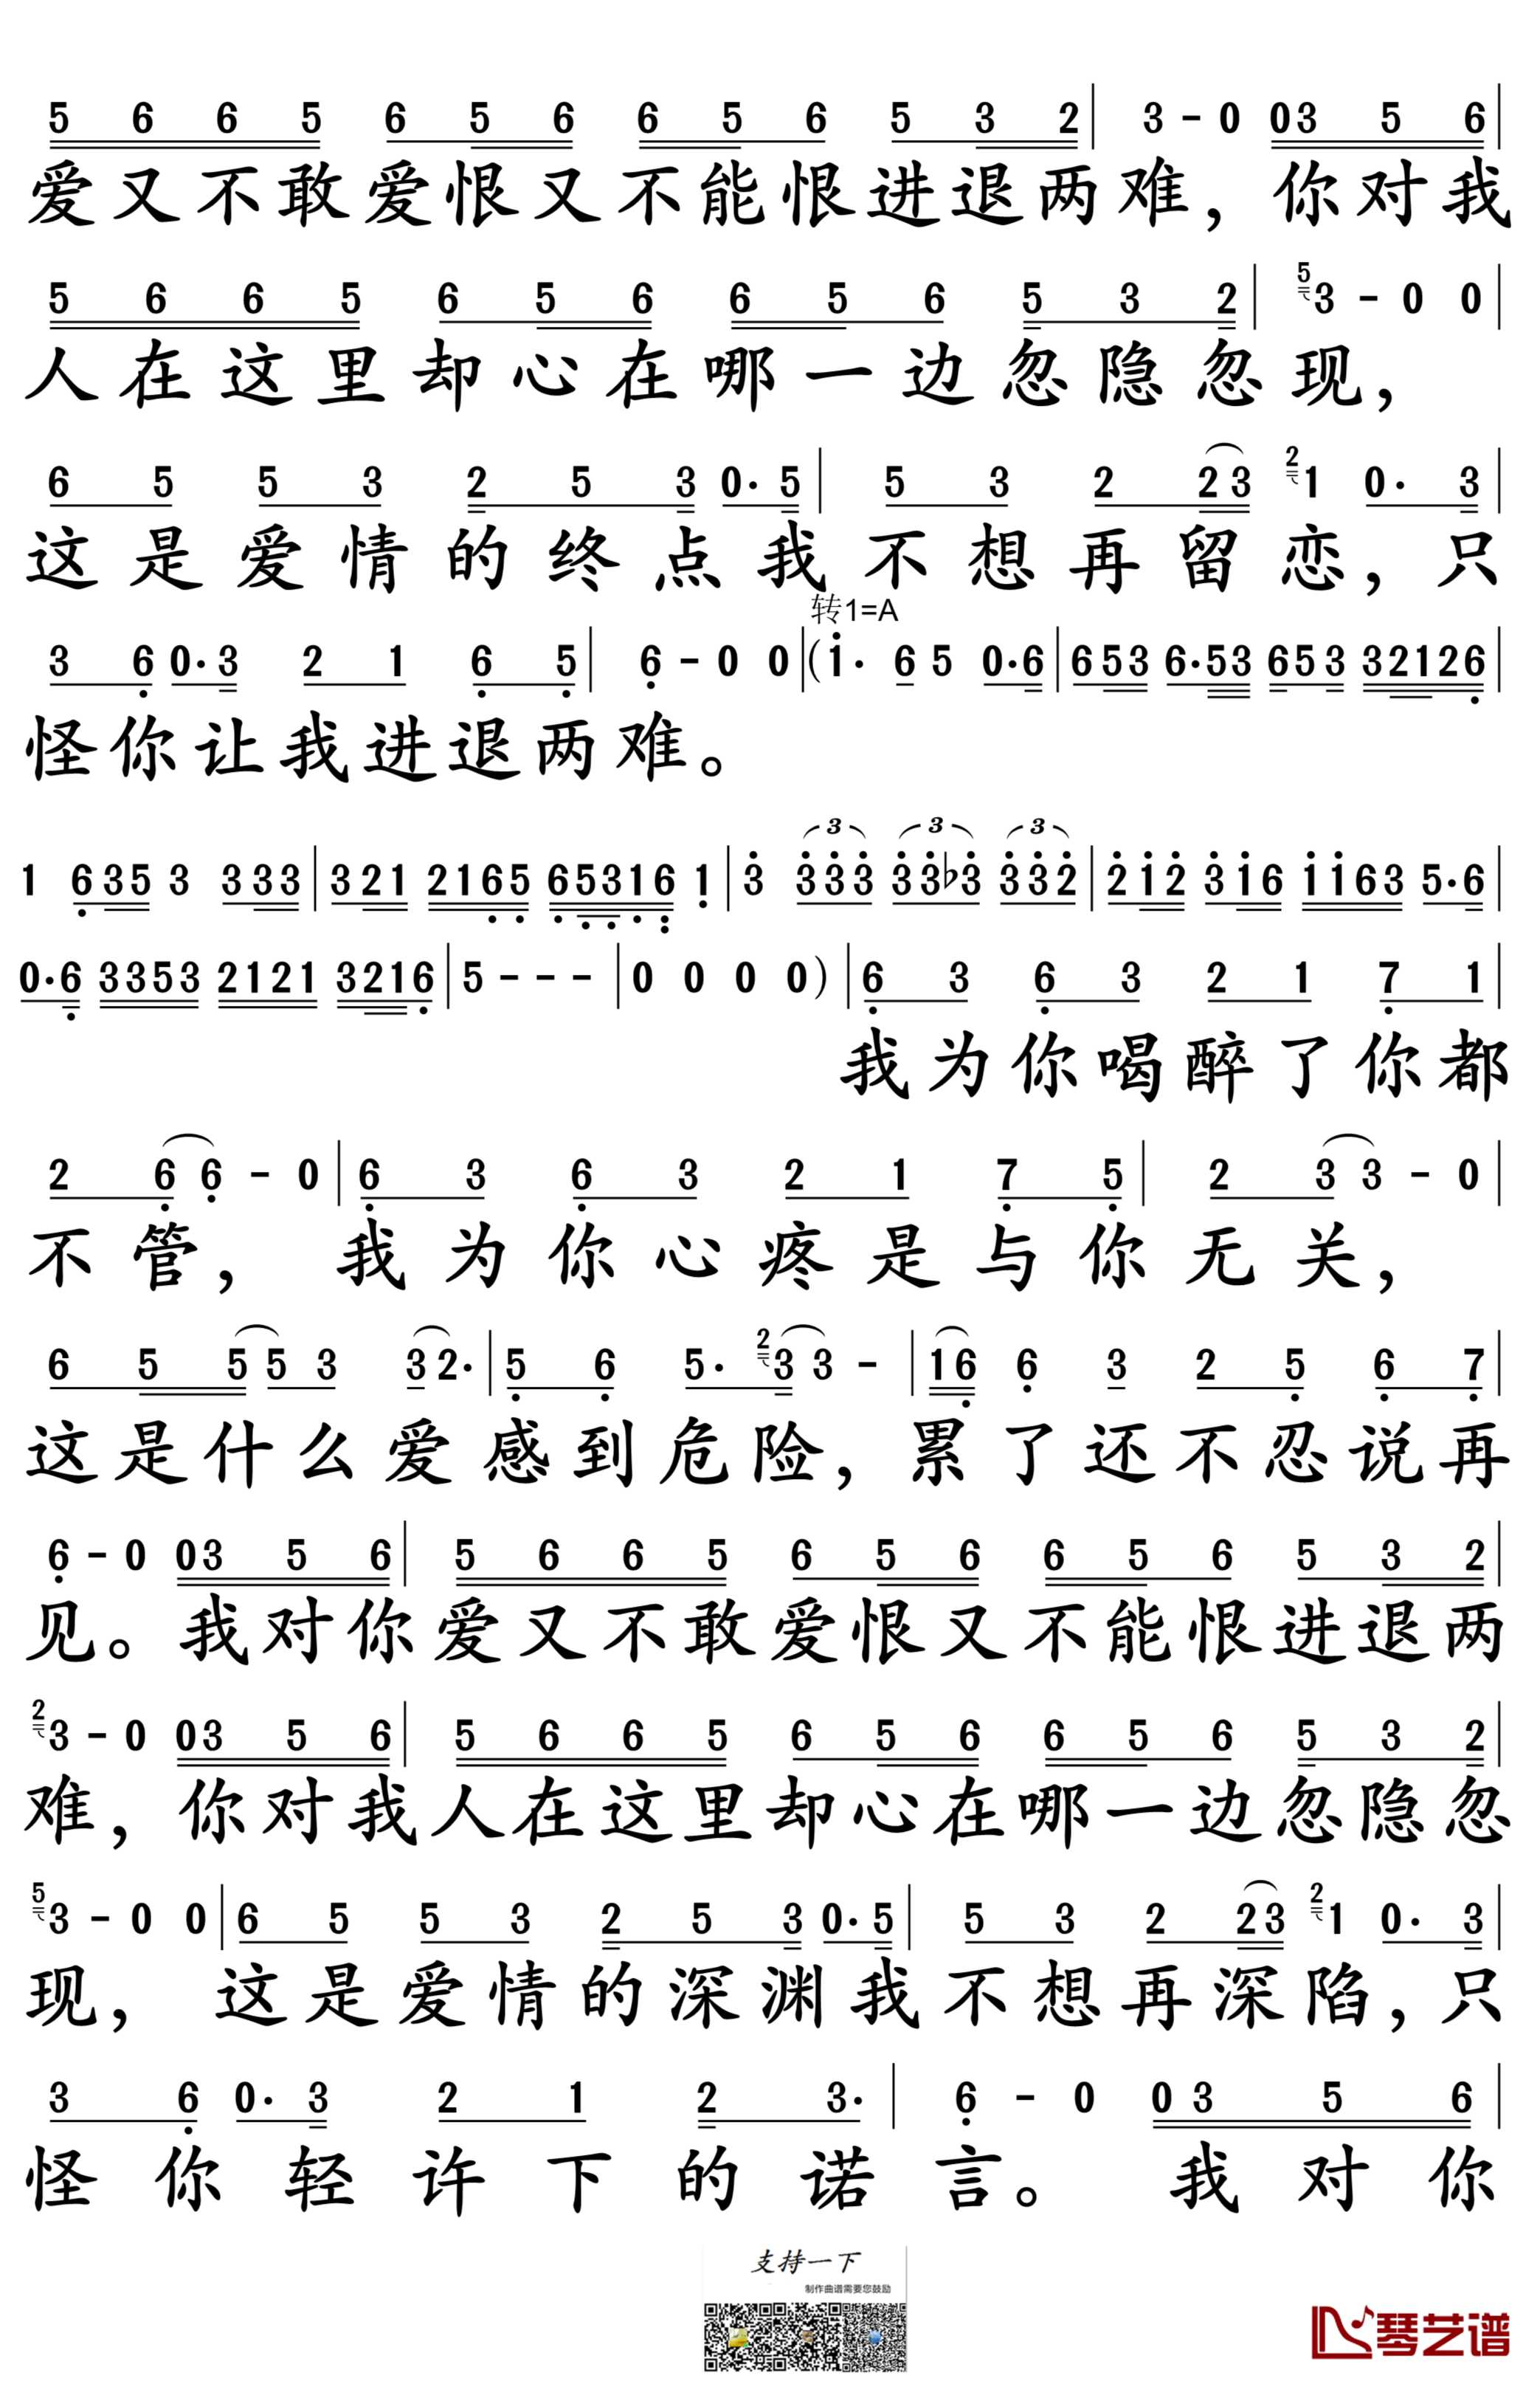 5 6 6 5 6 5 6 6 5 6 5 3 2 | 3 - 0 03 5 6 |
爱又不敢爱恨又不能恨进退两难，你对我
5 6 6 5 6 5 6 6 5 6 5 3 2 | 5 3 - 0 0 |
人在这里却心在哪一边忽隐忽现，
6 5 5 3 2 5 3 0· 5 | 5 3 2 23 2 1 0· 3 |
这是爱情的终点我不想再留恋，只
转1=A
3 6 0·3 2 1 6 5 | 6 - 0 0 | (1· 6 5 0·6 | 653 6·53 653 32126 |
怪你让我进退两难。
3 3 3
1 635 3 333 | 321 2165 65316 1 | 3 333 33♭3 332 | 212 316 1163 5·6 |
0·6 3353 2121 3216 | 5 - - - | 0 0 0 0) | 6 3 6 3 2 1 7 1 |
我为你喝醉了你都
2 6 6 - 0 | 6 3 6 3 2 1 7 5 | 2 3 3 - 0 |
不管，我为你心疼是与你无关，
6 5 5 5 3 3 2· | 5 6 5· 2 3 3 - | 16 6 3 2 5 6 7 |
这是什么爱感到危险，累了还不忍说再
6 - 0 03 5 6 | 5 6 6 5 6 5 6 6 5 6 5 3 2 |
见。我对你爱又不敢爱恨又不能恨进退两
2 3 - 0 03 5 6 | 5 6 6 5 6 5 6 6 5 6 5 3 2 |
难，你对我人在这里却心在哪一边忽隐忽
5 3 - 0 0 | 6 5 5 3 2 5 3 0· 5 | 5 3 2 23 2 1 0· 3 |
现，这是爱情的深渊我不想再深陷，只
3 6 0· 3 2 1 2 3· | 6 - 0 0 3 5 6 |
怪你轻许下的诺言。我对你
支持一下
制作曲谱需要您鼓励
琴艺谱